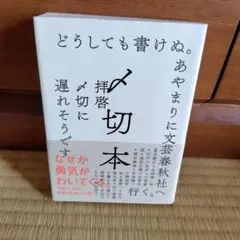 どうしても書けぬ。
あやまりに文芸春秋社へ
行く。
〆切本
拝啓
〆切に
遅れそうです
なぜか
勇気が
わいてくる。